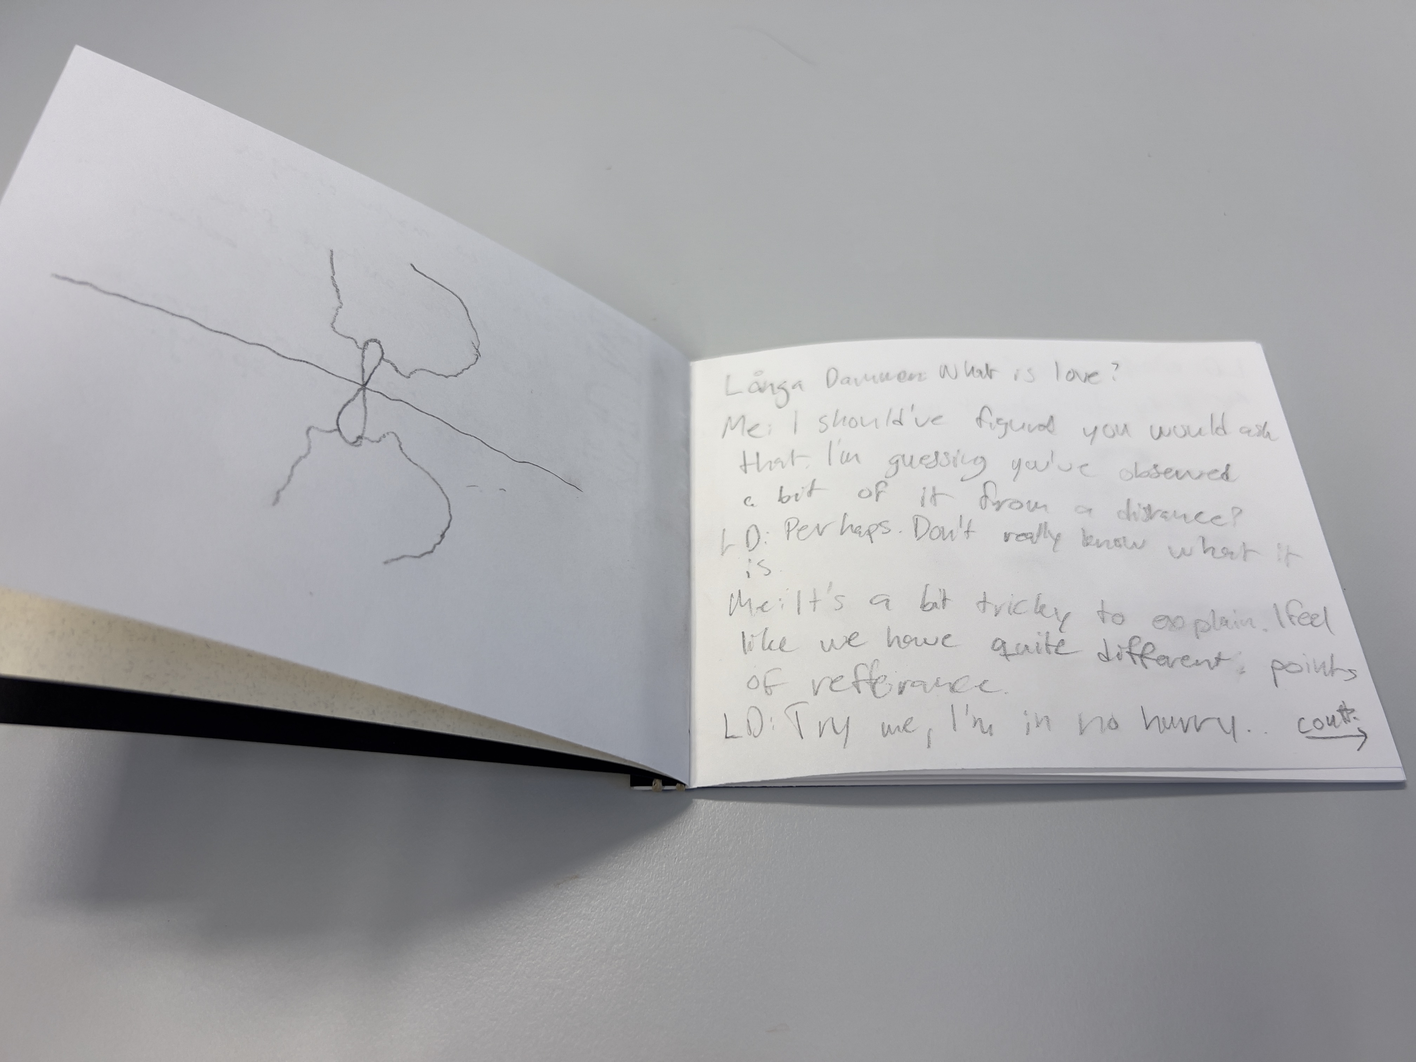 Långa Dammen: What is love?
Me: I should've figured you would ask
that. I'm guessing you've observed
a bit of it from a distance?
LD: Perhaps. Don't really know what it
is.
Me: It's a bit tricky to explain. I feel
like we have quite different points
of refferance.
LD: Try me, I'm in no hurry..